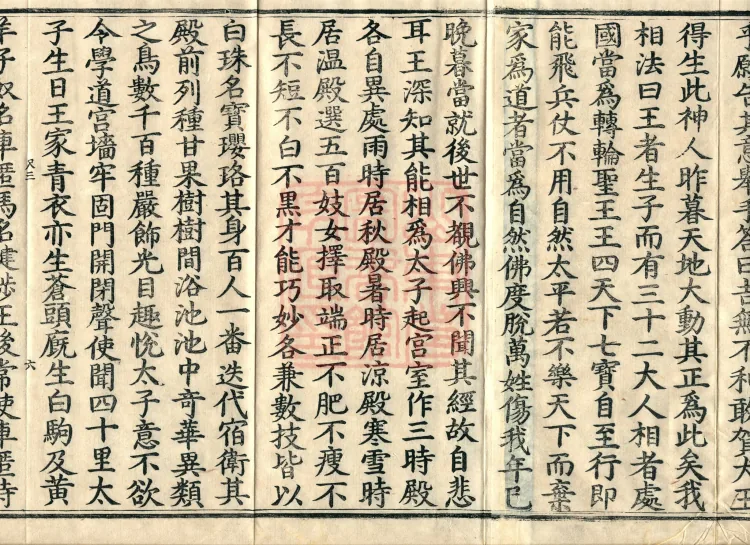 願告其意舉手答曰甚無不利敢賀大王
得生此神人昨暮天地大動其正爲此矣我
相法曰王者生子而有三十二大人相者處
國當爲轉輪聖王王四天下七寶自至行即
能飛兵仗不用自然太平若不樂天下而棄
家爲道者當爲自然佛度脫萬姓傷我年已
晚暮當就後世不覩佛興不聞其經故自悲
耳王深知其能相爲太子起宮室作三時殿
各自異處雨時居秋殿暑時居涼殿寒雪時
居温殿選五百妓女擇取端正不肥不瘦不
長不短不白不黑才能巧妙各兼數技皆以
白珠名寶瓔珞其身百人一番迭代宿衛其
殿前列種甘果樹樹間浴池池中奇華異類
之鳥數千百種嚴飾光目趣悅太子意不欲
令學道宮墻牢固門開閉聲使聞四十里太
子生日王家青衣亦生蒼頭廐生白駒及黃
尺三 六
羊子奴名車匿馬名揵陟王後常使車匿侍